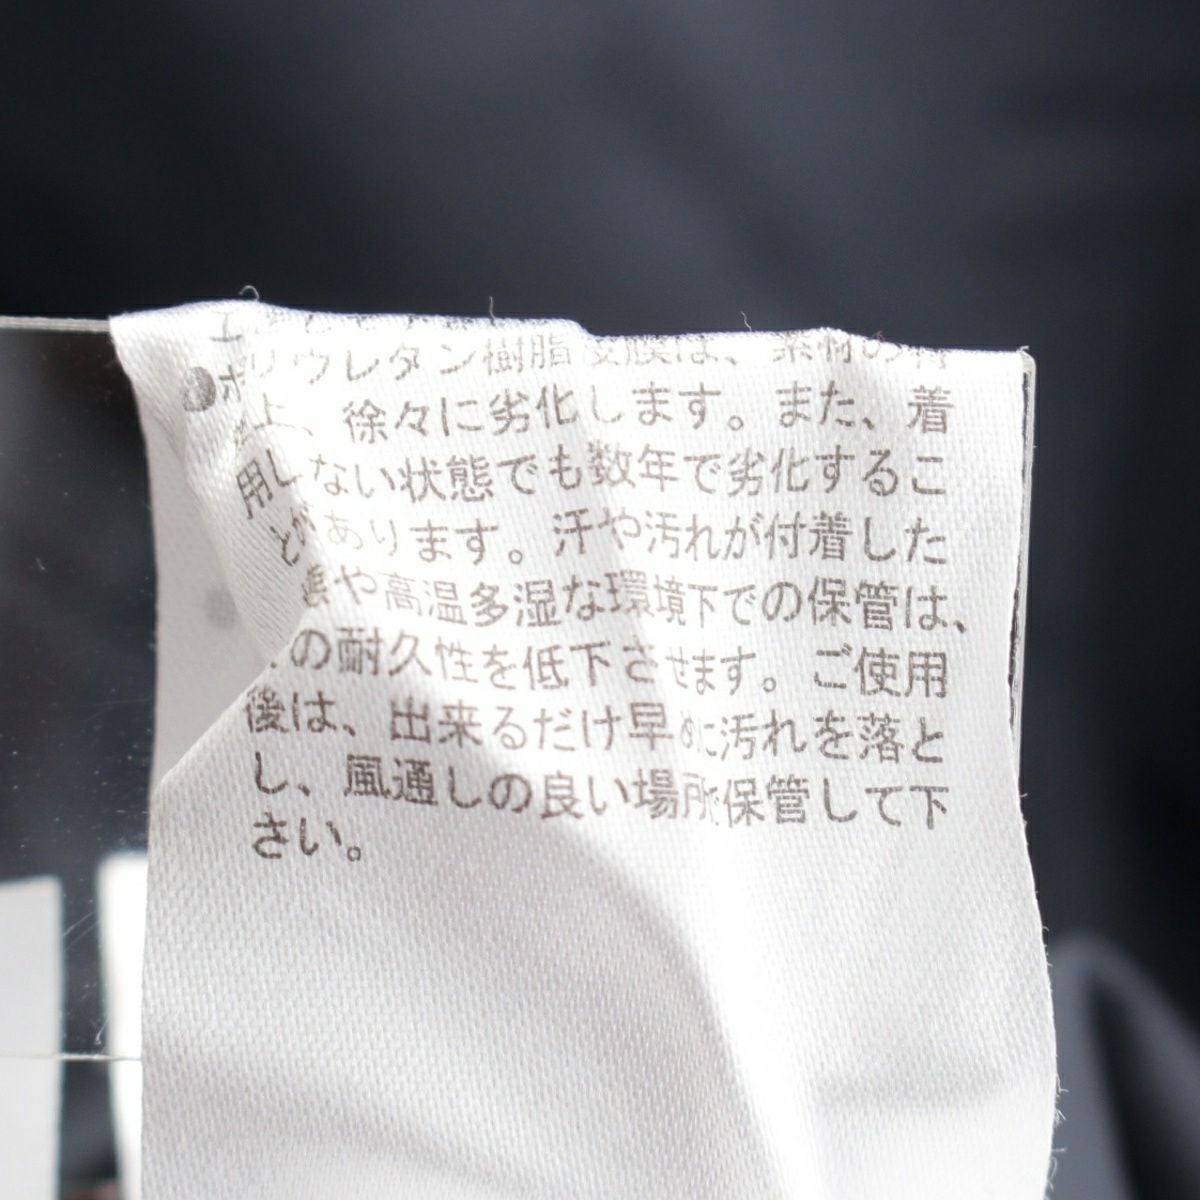 ●ポリウレタン樹脂皮膜は、素材の特
性上、徐々に劣化します。また、着
用しない状態でも数年で劣化するこ
とがあります。汗や汚れが付着した
態や高温多湿な環境下での保管は、
の耐久性を低下させます。ご使用
後は、出来るだけ早めに汚れを落と
し、風通しの良い場所で保管して下
さい。